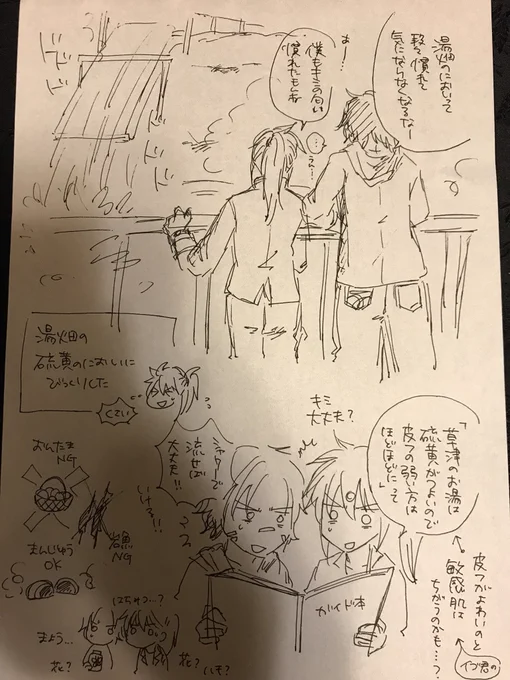 湯畑のにおいって
段々慣れて
気にならなくなるなー
あー…
僕もキミの匂い
慣れたもんね
…
うん…
ドドドド
ドドド
湯畑の
硫黄のにおいに
びっくりした
くさい
キミ
大丈夫?
「草津のお湯は
硫黄がつよいので
皮フの弱い方は
ほどほどに」って
シャワーで
流せば
大丈夫!!
いける!!
おんたま
NG
岩魚
NG
まんじゅう
OK
ガイド本
皮フがよわいのと
敏感肌は
ちがうのかも…?
イブ君の
はちゅう…?
まよう…
花?
花?
ハモ?